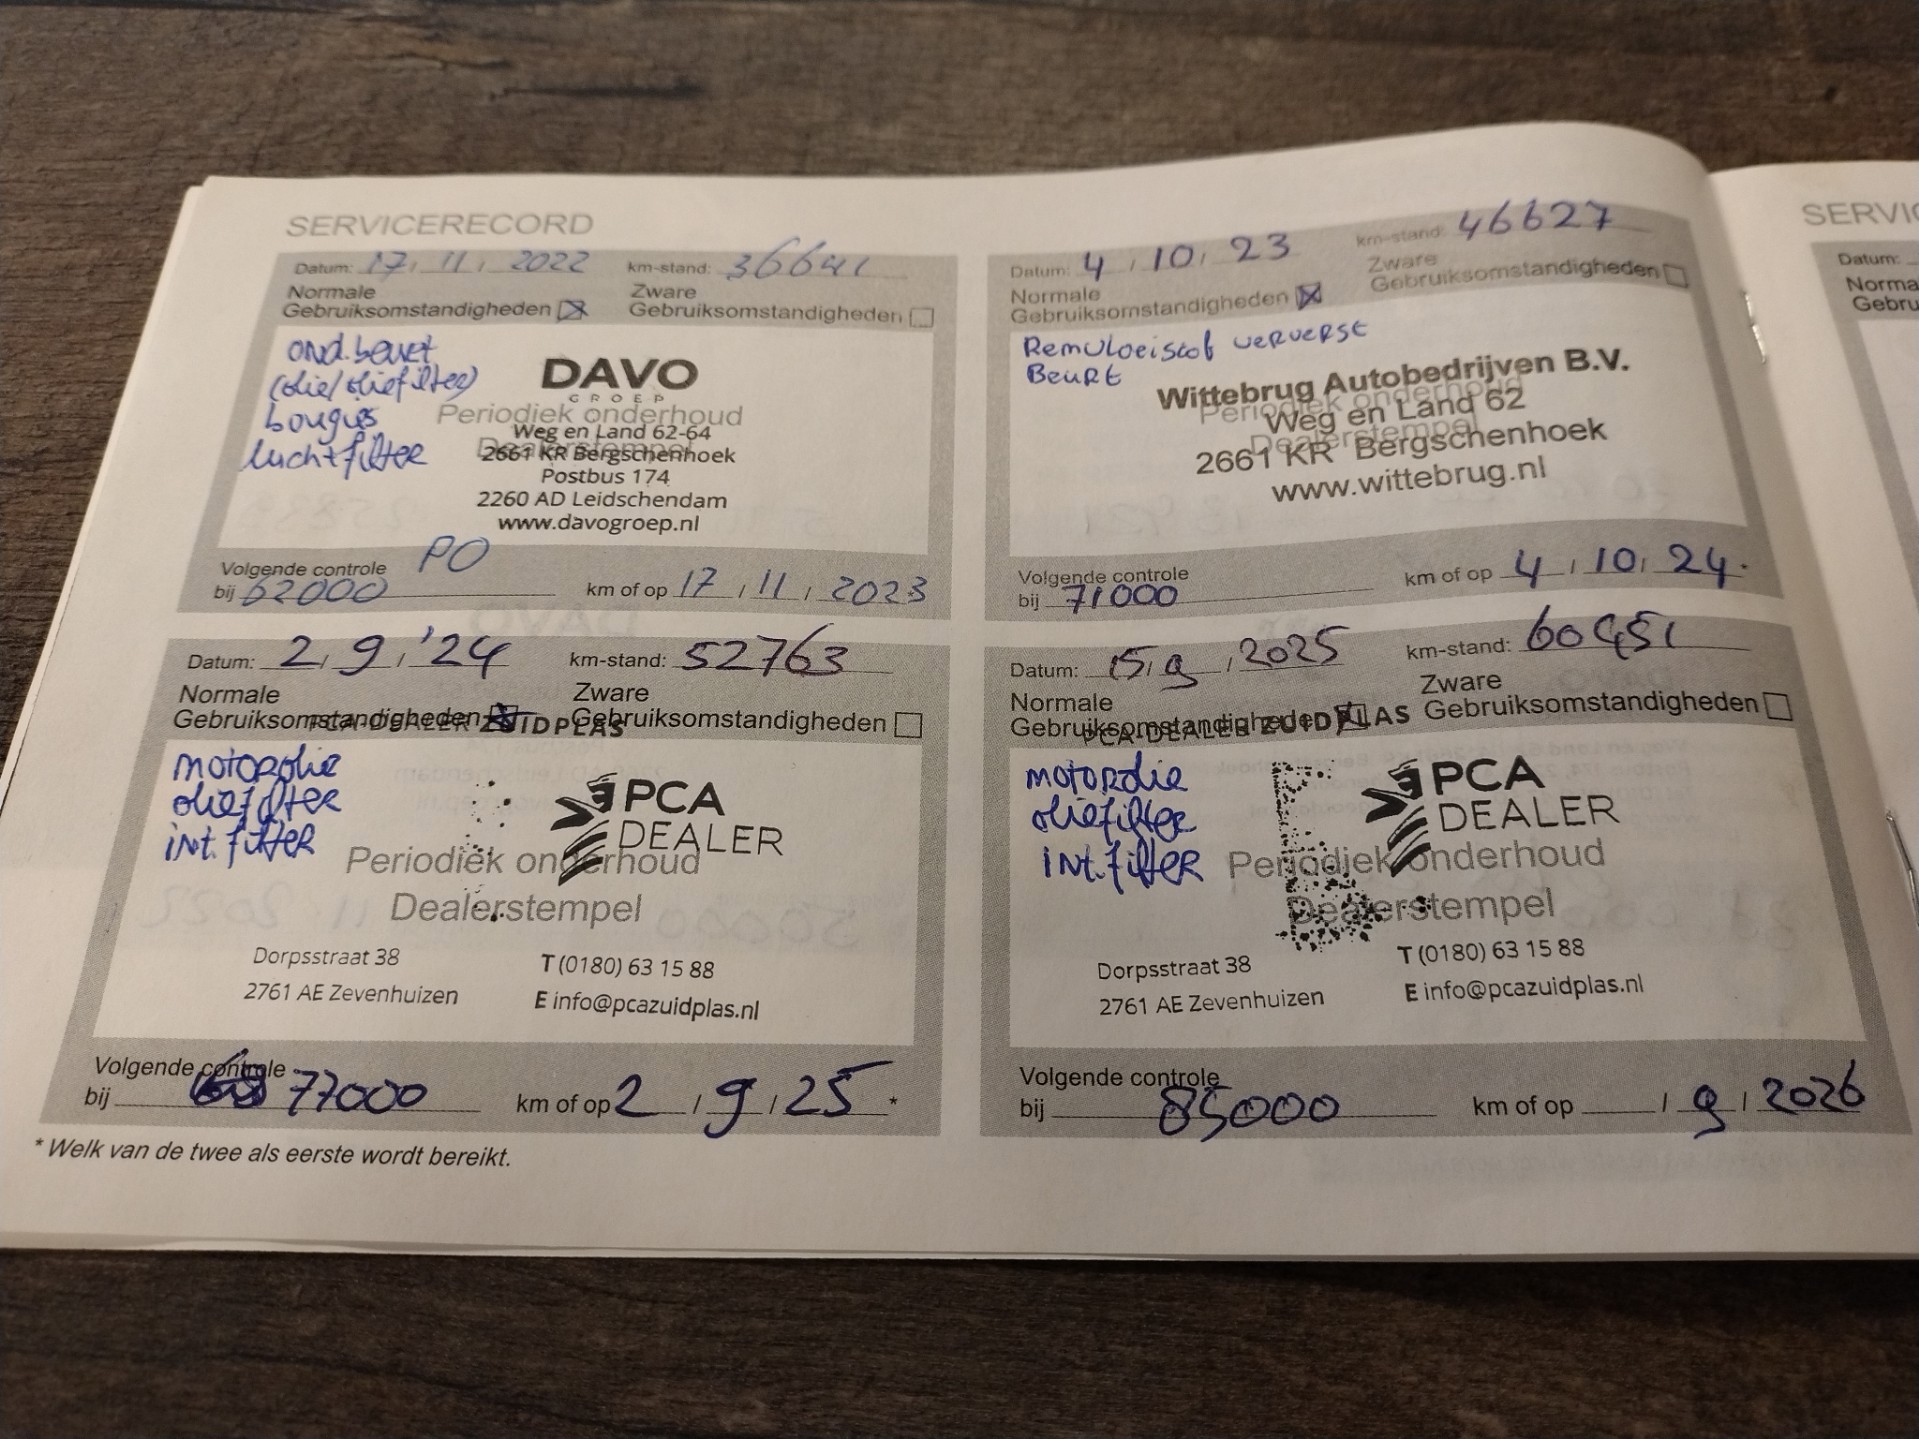 SERVICERECORD
Datum: 17 / 11 / 2022 km-stand: 36641
Normale Zware
Gebruiksomstandigheden Gebruiksomstandigheden
ond.beurt
(olie/oliefilter)
bougies
luchtfilter
DAVO
GROEP
Periodiek onderhoud
Dealerstempel
Weg en Land 62-64
2661 KR Bergschenhoek
Postbus 174
2260 AD Leidschendam
www.davogroep.nl
PO
Volgende controle
bij 62000 km of op 17 / 11 / 2023
Datum: 4 / 10 / 23 km-stand: 46627
Normale Zware
Gebruiksomstandigheden Gebruiksomstandigheden
Remvloeistof ververst
Beurt
Wittebrug Autobedrijven B.V.
Periodiek onderhoud
Weg en Land 62
Dealerstempel
2661 KR Bergschenhoek
www.wittebrug.nl
Volgende controle
bij 71000 km of op 4 / 10 / 24.
Datum: 2 / 9 / '24 km-stand: 52763
Normale Zware
Gebruiksomstandigheden Gebruiksomstandigheden
PCA-DEALER ZUIDPLAS
motorolie
oliefilter
int.filter
PCA
DEALER
Periodiek onderhoud
Dealerstempel
Dorpsstraat 38 T (0180) 63 15 88
2761 AE Zevenhuizen E info@pcazuidplas.nl
Volgende controle
bij 77000 km of op 2 / 9 / 25 *
Datum: 15 / 9 / 2025 km-stand: 60451
Normale Zware
Gebruiksomstandigheden Gebruiksomstandigheden
PCA-DEALER ZUIDPLAS
motorolie
oliefilter
int.filter
PCA
DEALER
Periodiek onderhoud
Dealerstempel
Dorpsstraat 38 T (0180) 63 15 88
2761 AE Zevenhuizen E info@pcazuidplas.nl
Volgende controle
bij 85000 km of op / 9 / 2026
* Welk van de twee als eerste wordt bereikt.
Datum: